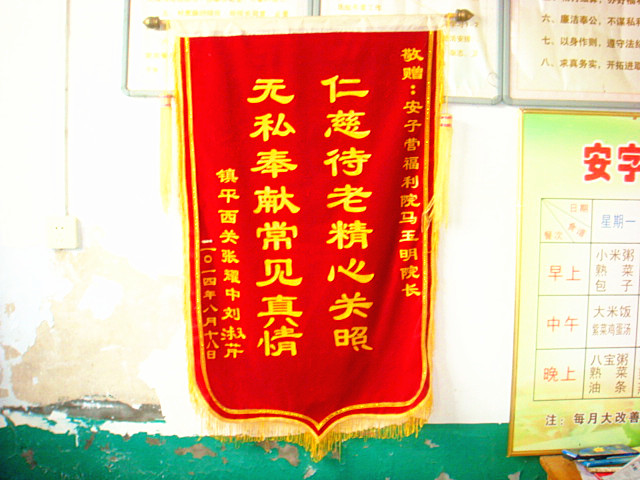 敬赠：安子营福利院马玉明院长
仁慈待老精心关照
无私奉献常见真情
镇平西关张耀中刘淑芹
二〇一四年八月十八日
六、廉洁奉公，不谋私利
七、以身作则，遵守法
八、求真务实，开拓进取
安字
日期
餐次
星期一
早上
小米粥
熟菜
包子
中午
大米饭
紫菜鸡蛋汤
晚上
八宝粥
熟菜
油条
注：每月大改善